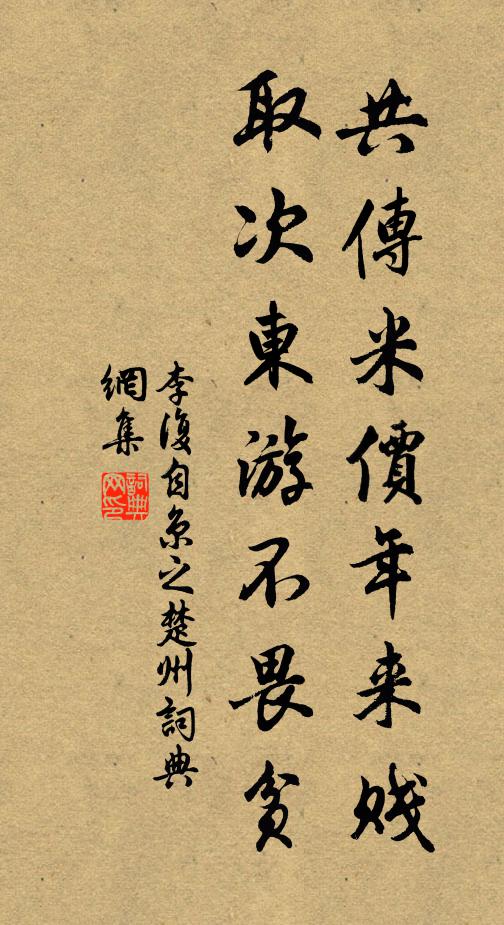 共傳米價年來賤
取次東游不畏貧
李復自京之楚州詞典
網集
詞典
网印